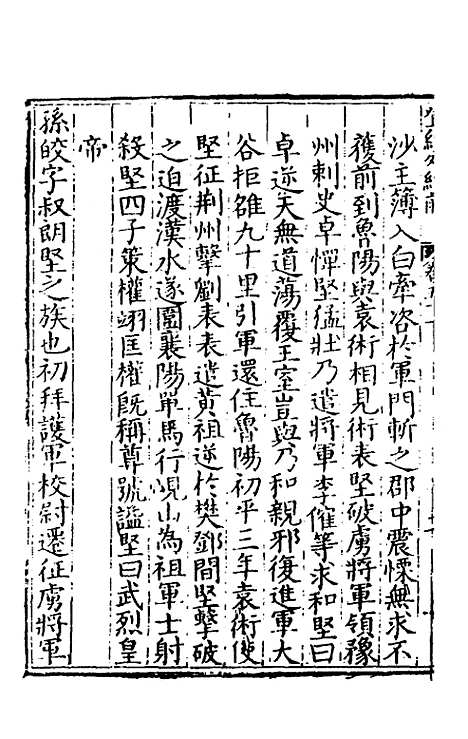 沙主簿入白牽咨於軍門斬之郡中震慄無求不
獲前到魯陽與袁術相見術表堅破虜將軍領豫
州刺史卓憚堅猛壯乃遣將軍李傕等求和堅曰
卓逆天無道蕩覆王室豈與乃和親邪復進軍大
谷拒雒九十里引軍還住魯陽初平三年袁術使
堅征荆州擊劉表表遣黄祖逆於樊鄧間堅擊破
之追渡漢水遂圍襄陽單馬行峴山為祖軍士射
殺堅四子策權翊匡權既稱尊號謚堅曰武烈皇
帝
孫皎字叔朗堅之族也初拜護軍校尉遷征虜將軍